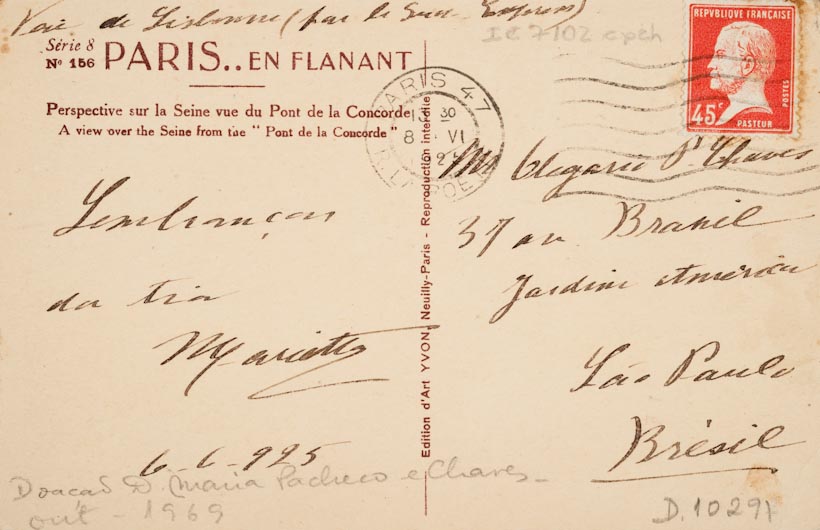 Voie de Lisbonne (par le Sud-Express)
Série 8
Nº 156
PARIS..EN FLANANT
Perspective sur la Seine vue du Pont de la Concorde
A view over the Seine from the " Pont de la Concorde "
IC 7102
REPVBLIQVE FRANÇAISE
45c
POSTES
PASTEUR
PARIS 47
30
8 VI
Chaves
37 av Brasil
Jardim America
São Paulo
Brésil
Lembranças
da tia
Marietta
6-6-925
Edition d'Art YVON, Neuilly-Paris - Reproduction interdite
Doacao D. Maria Pacheco e Chaves -
out - 1969
D.10291